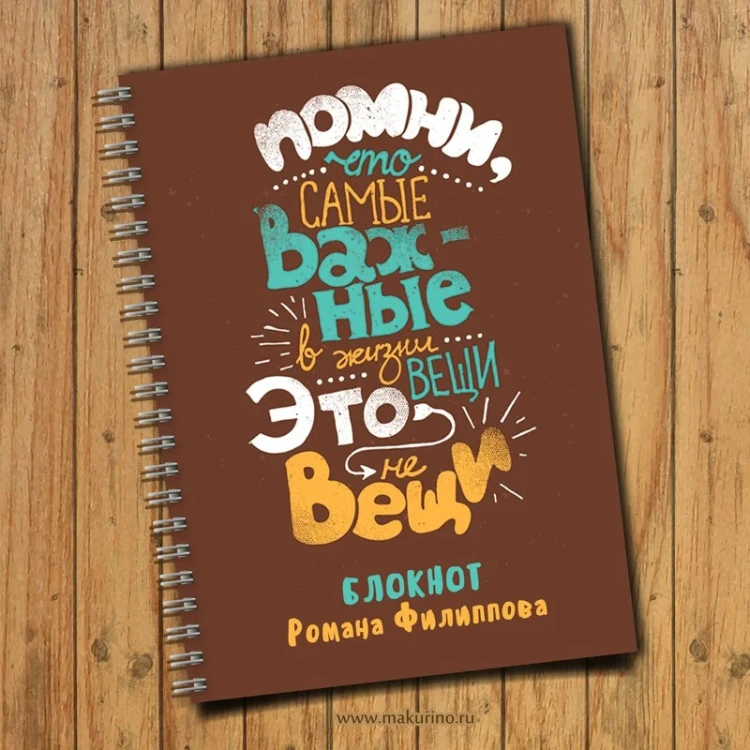 Помни,
что
САМЫЕ
Важ-
ные
в жизни
ВЕЩИ
Это
не
Вещи
БЛОКНОТ
Романа Филиппова
www.makurino.ru